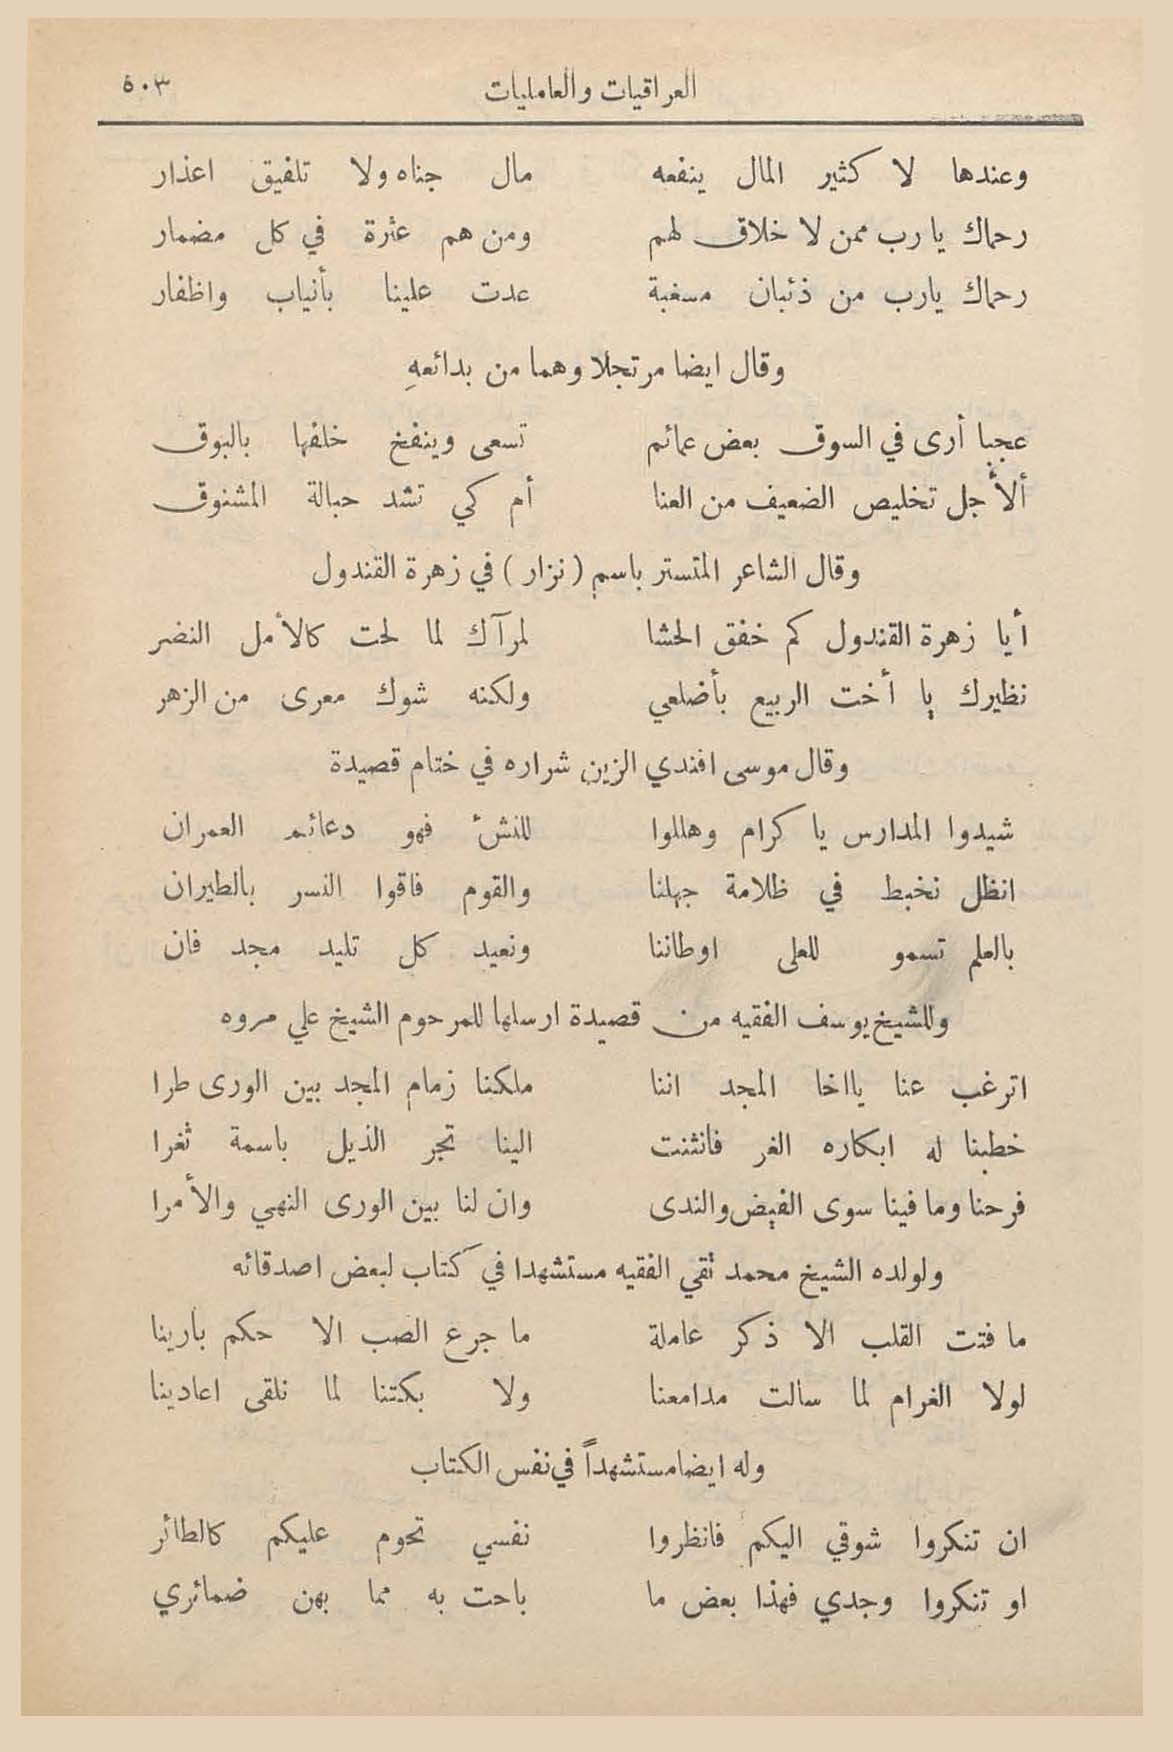 العراقيات والعامليات ٥٠٣
وعندها لا كثير المال ينفعه مال جناه ولا تلفيق اعذار
رحماك يا رب ممن لا خلاق لهم ومن هم عثرة في كل مضمار
رحماك يارب من ذئبان مسغبة عدت علينا بأنياب واظفار
وقال ايضا مرتجلا وهما من بدائعهِ
عجبا أرى في السوق بعض عمائم تسعى وينفخ خلفها بالبوق
ألأجل تخليص الضعيف من العنا أم كي تشد حبالة المشنوق
وقال الشاعر المتستر باسم (نزار) في زهرة القندول
أيا زهرة القندول كم خفق الحشا لمرآك لما لحت كالأمل النضر
نظيرك يا أخت الربيع بأضلعي ولكنه شوك معرى من الزهر
وقال موسى افندي الزين شراره في ختام قصيدة
شيدوا المدارس يا كرام وهللوا للنشئ فهو دعائم العمران
انظل نخبط في ظلامة جهلنا والقوم فاقوا النسر بالطيران
بالعلم تسمو للعلى اوطاننا ونعيد كل تليد مجد فان
وللشيخ يوسف الفقيه من قصيدة ارسلها للمرحوم الشيخ علي مروه
اترغب عنا يااخا المجد اننا ملكنا زمام المجد بين الورى طرا
خطبنا له ابكاره الغر فانثنت الينا تجر الذيل باسمة ثغرا
فرحنا وما فينا سوى الفيض والندى وان لنا بين الورى النهي والأمرا
ولولده الشيخ محمد تقي الفقيه مستشهدا في كتاب لبعض اصدقائه
ما فتت القلب الا ذكر عاملة ما جرع الصب الا حكم بارينا
لولا الغرام لما سالت مدامعنا ولا بكتنا لما نلقى اعادينا
وله ايضا مستشهداً في نفس الكتاب
ان تنكروا شوقي اليكم فانظروا نفسي تحوم عليكم كالطائر
او تنكروا وجدي فهذا بعض ما باحت به مما بهن ضمائري